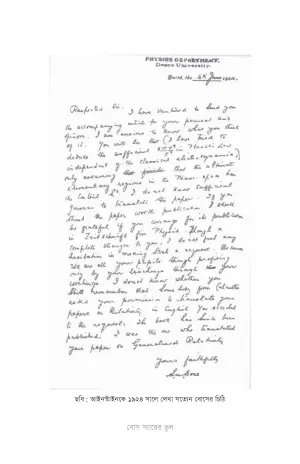 PHYSICS DEPARTMENT,
Dacca University.
Dated, the 4th June 1924.
Respected Sir,
I have ventured to send you
the accompanying article for your perusal and
opinion. I am anxious to know what you think
of it. You will see that I have tried to
deduce the coefficient in Planck's Law
independent of the classical electrodynamics,
only assuming that the ultimate
elementary regions in the Phase-space has
the content h³. I do not know sufficient
German to translate the paper. If you
think the paper worth publication I shall
be grateful if you arrange for its publication
in Zeitschrift für Physik. Though a
complete stranger to you, I do not feel any
hesitation in making such a request. Because
We are all your pupils though profiting
only by your teachings through your
writings. I do not know whether you
still remember that somebody from Calcutta
asked your permission to translate your
papers on Relativity in English. You acceded
to the request. The book has since been
published. I was the one who translated
your paper on Generalised Relativity.
Yours faithfully
S.N. Bose
ছবি : আইনস্টাইনকে ১৯২৪ সালে লেখা সত্যেন বোসের চিঠি
বোস স্যারের ভুল